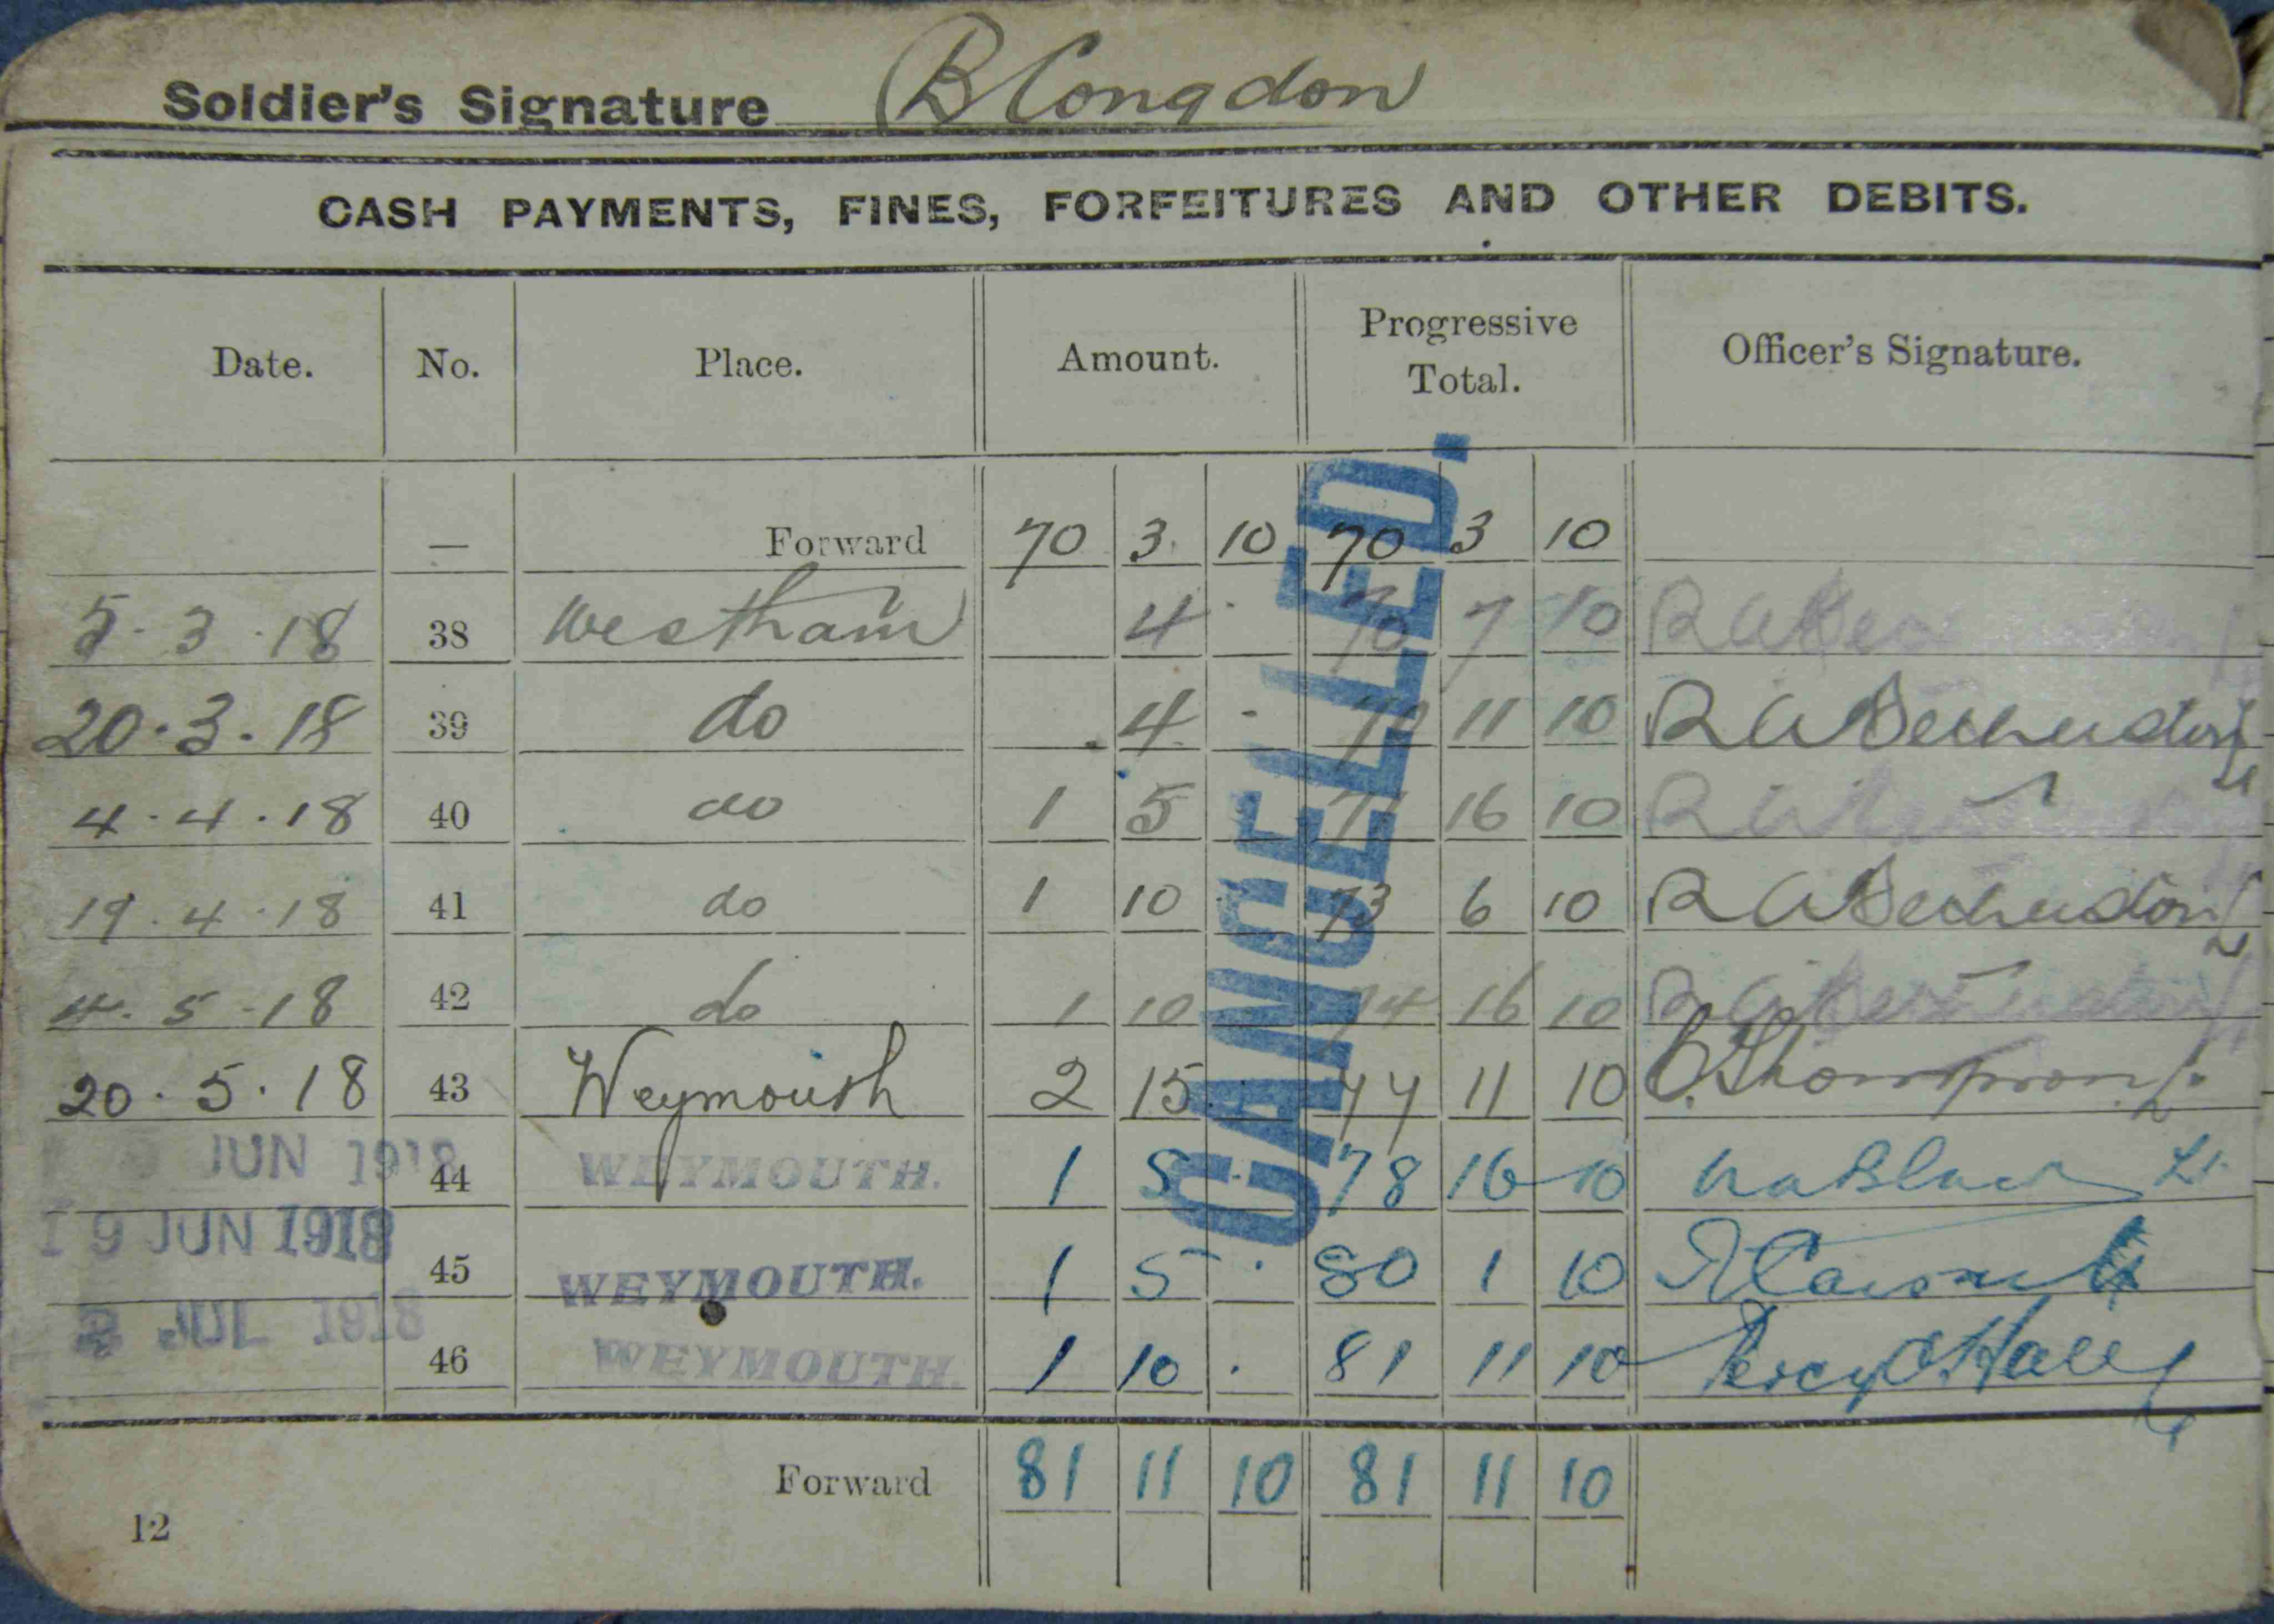 Soldier's Signature B Congdon
CASH PAYMENTS, FINES, FORFEITURES AND OTHER DEBITS.
Date. No. Place. Amount. Progressive Total. Officer's Signature.
— Forward 70 3 10 70 3 10
5.3.18 38 Westham 4 - 70 7 10 R A
20.3.18 39 do 4 - 70 11 10 R A
4.4.18 40 do 1 5 71 16 10 R
19.4.18 41 do 1 10 73 6 10 R A
4.5.18 42 do 1 10 74 16 10 R
20.5.18 43 Weymouth 2 15 77 11 10 Thompson Lt
JUN 1918 44 WEYMOUTH. 1 5 . 78 16 10 Lt
19 JUN 1918 45 WEYMOUTH. 1 5 . 80 1 10
3 JUL 1918 46 WEYMOUTH. 1 10 . 81 11 10 Percy C Hall
Forward 81 11 10 81 11 10
12
CANCELLED.